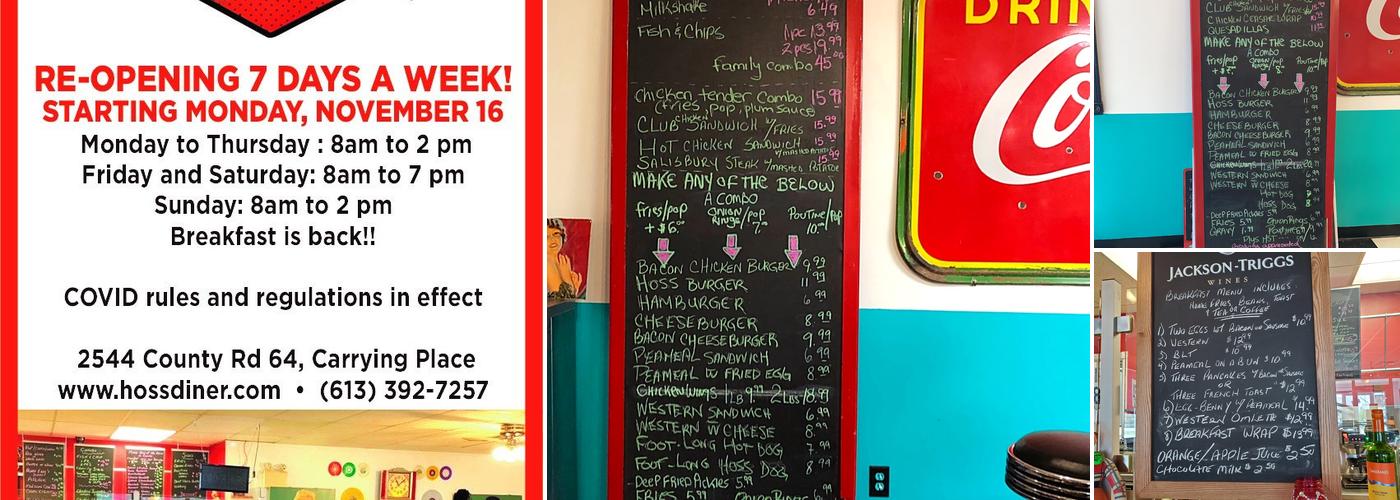 RE-OPENING 7 DAYS A WEEK!
STARTING MONDAY, NOVEMBER 16
Monday to Thursday : 8am to 2 pm
Friday and Saturday: 8am to 7 pm
Sunday: 8am to 2 pm
Breakfast is back!!
COVID rules and regulations in effect
2544 County Rd 64, Carrying Place
www.hossdiner.com • (613) 392-7257
Milkshake 6.49
Fish & Chips 1pc 13.99
2 pcs 19.99
Family combo 45.00
chicken tender combo 15.99
(fries, pop, plum sauce
CLUB chicken SANDWICH W/FRIES 15.99
HOT CHICKEN SANDWICH 15.99
SALISBURY STEAK W/MASHED POTATOE
MAKE ANY OF THE BELOW
A COMBO
fries/pop onion rings/pop Poutine/pop
+ $6.00 7.00 10.00
BACON CHICKEN BURGER 9.99
HOSS BURGER 11.99
HAMBURGER 6.99
CHEESEBURGER 8.99
BACON CHEESEBURGER 9.99
PEAMEAL SANDWICH 6.99
PEAMEAL W FRIED EGG 8.99
Chicken Wings 1LB 9.99 2 LBS 18.99
WESTERN SANDWICH 6.99
WESTERN W CHEESE 8.99
FOOT-LONG HOT DOG 7.99
FOOT-LONG HOSS DOG 8.99
DEEP FRIED PICKLES 5.99
FRIES 5.99 ONION RINGS
DRIN
Co
CLUB SANDWICH W/FRIES
CHICKEN CEASAR WRAP
QUESADILLAS
MAKE ANY OF THE BELOW
A COMBO
fries/pop onion rings/pop Poutine/pop
BACON CHICKEN BURGER
HOSS BURGER
HAMBURGER
CHEESEBURGER
BACON CHEESEBURGER
PEAMEAL SANDWICH
PEAMEAL W FRIED EGG
WESTERN SANDWICH
WESTERN W CHEESE
HOT DOG
HOSS DOG
DEEP FRIED PICKLES 5.99
FRIES 5.99 Onion Rings
GRAVY 1.99
Plus HST
JACKSON-TRIGGS
WINES
BREAKFAST MENU INCLUDES
HOME FRIES, BEANS, TOAST
& TEA OR COFFEE
1) TWO EGGS W/ BACON OR SAUSAGE $10.99
2) WESTERN $12.99
3) BLT $10.99
4) PEAMEAL ON A BUN $10.99
5) THREE PANCAKES W/ BACON OR SAUSAGE
OR
THREE FRENCH TOAST $12.99
6) EGG BENNY W/ PEAMEAL 14.99
7) WESTERN OMLETE $12.99
8) BREAKFAST WRAP $13.99
ORANGE/APPLE JUICE $2.50
CHOCOLATE MILK $2.50